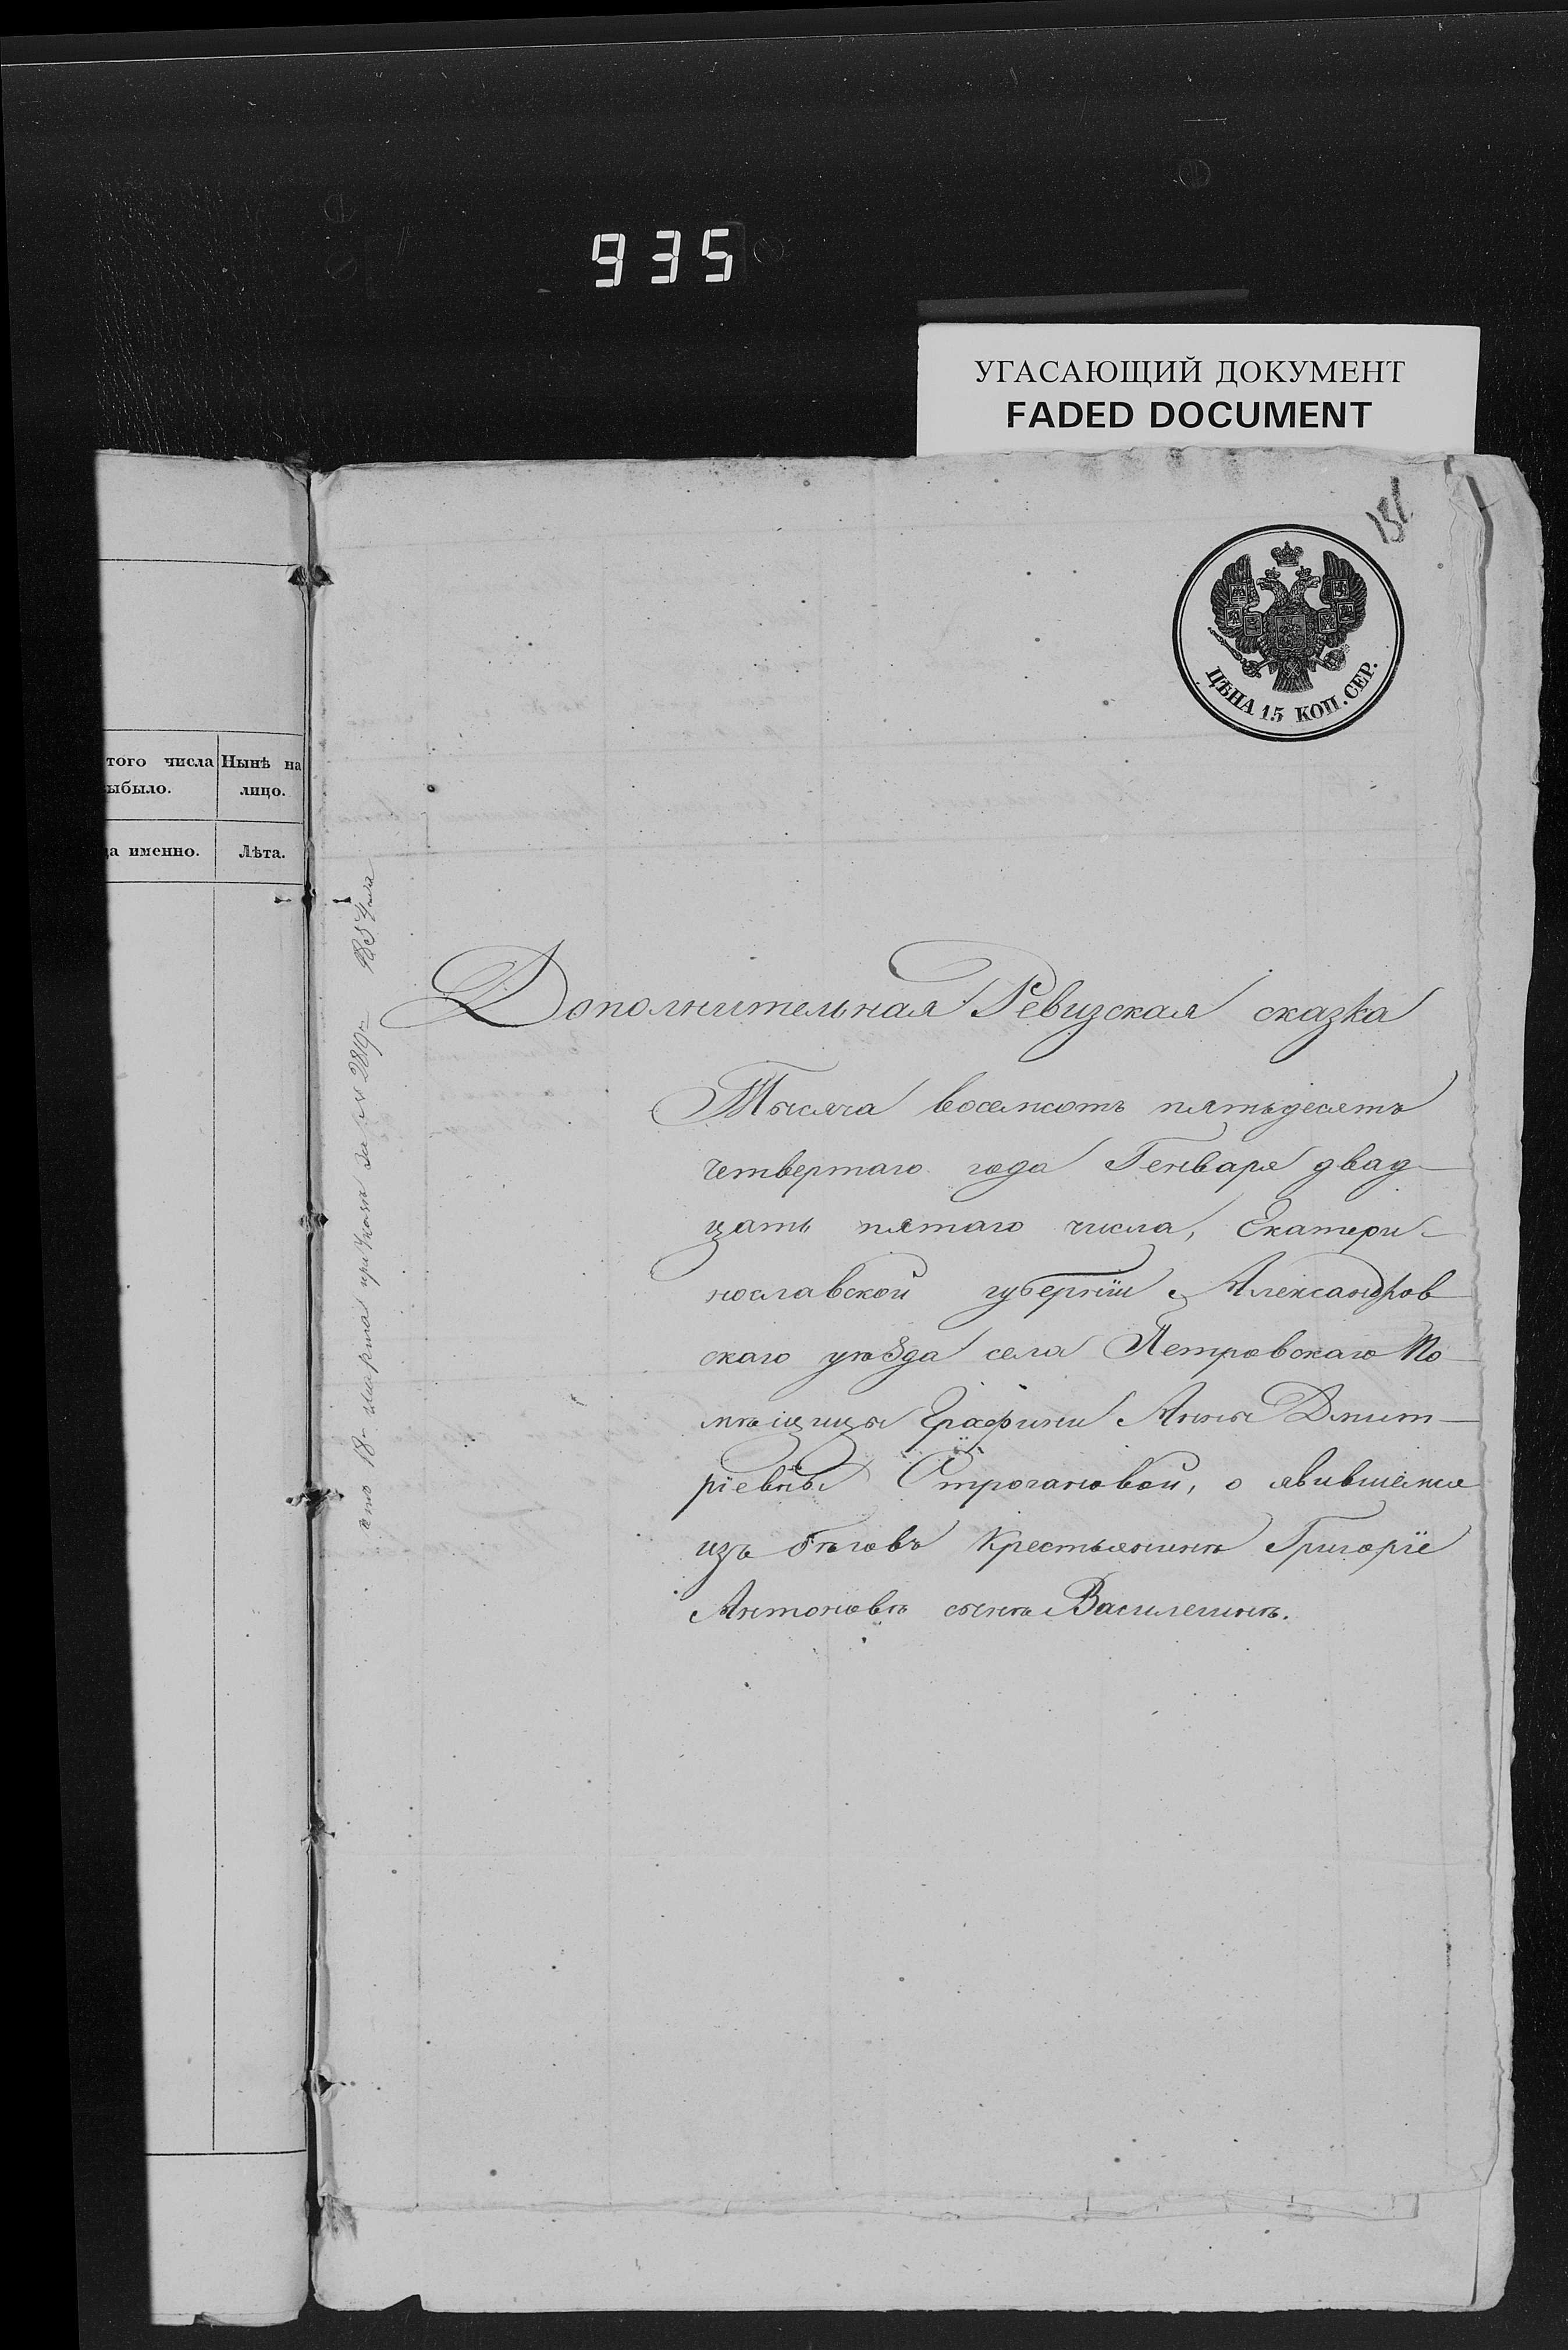 935
УГАСАЮЩИЙ ДОКУМЕНТ
FADED DOCUMENT
151
ЦѢНА 15 КОП. СЕР.
того числа
ыбыло.
Нынѣ на
лицо.
да именно.
Лѣта.
18 марта при Указѣ за № 2819
Дополнительная Ревизская сказка
Тысяча восемсотъ пятьдесятъ
четвертаго года Генваря двад-
цать пятаго числа, Екатери-
нославской губерніи Александров
скаго уѣзда села Петровскаго По-
мѣщицы Графини Анны Дмит-
ріевны Строгановой, о явившемся
изъ бѣговъ Крестьянинѣ Григоріе
Антоновѣ сынѣ Василенинѣ.